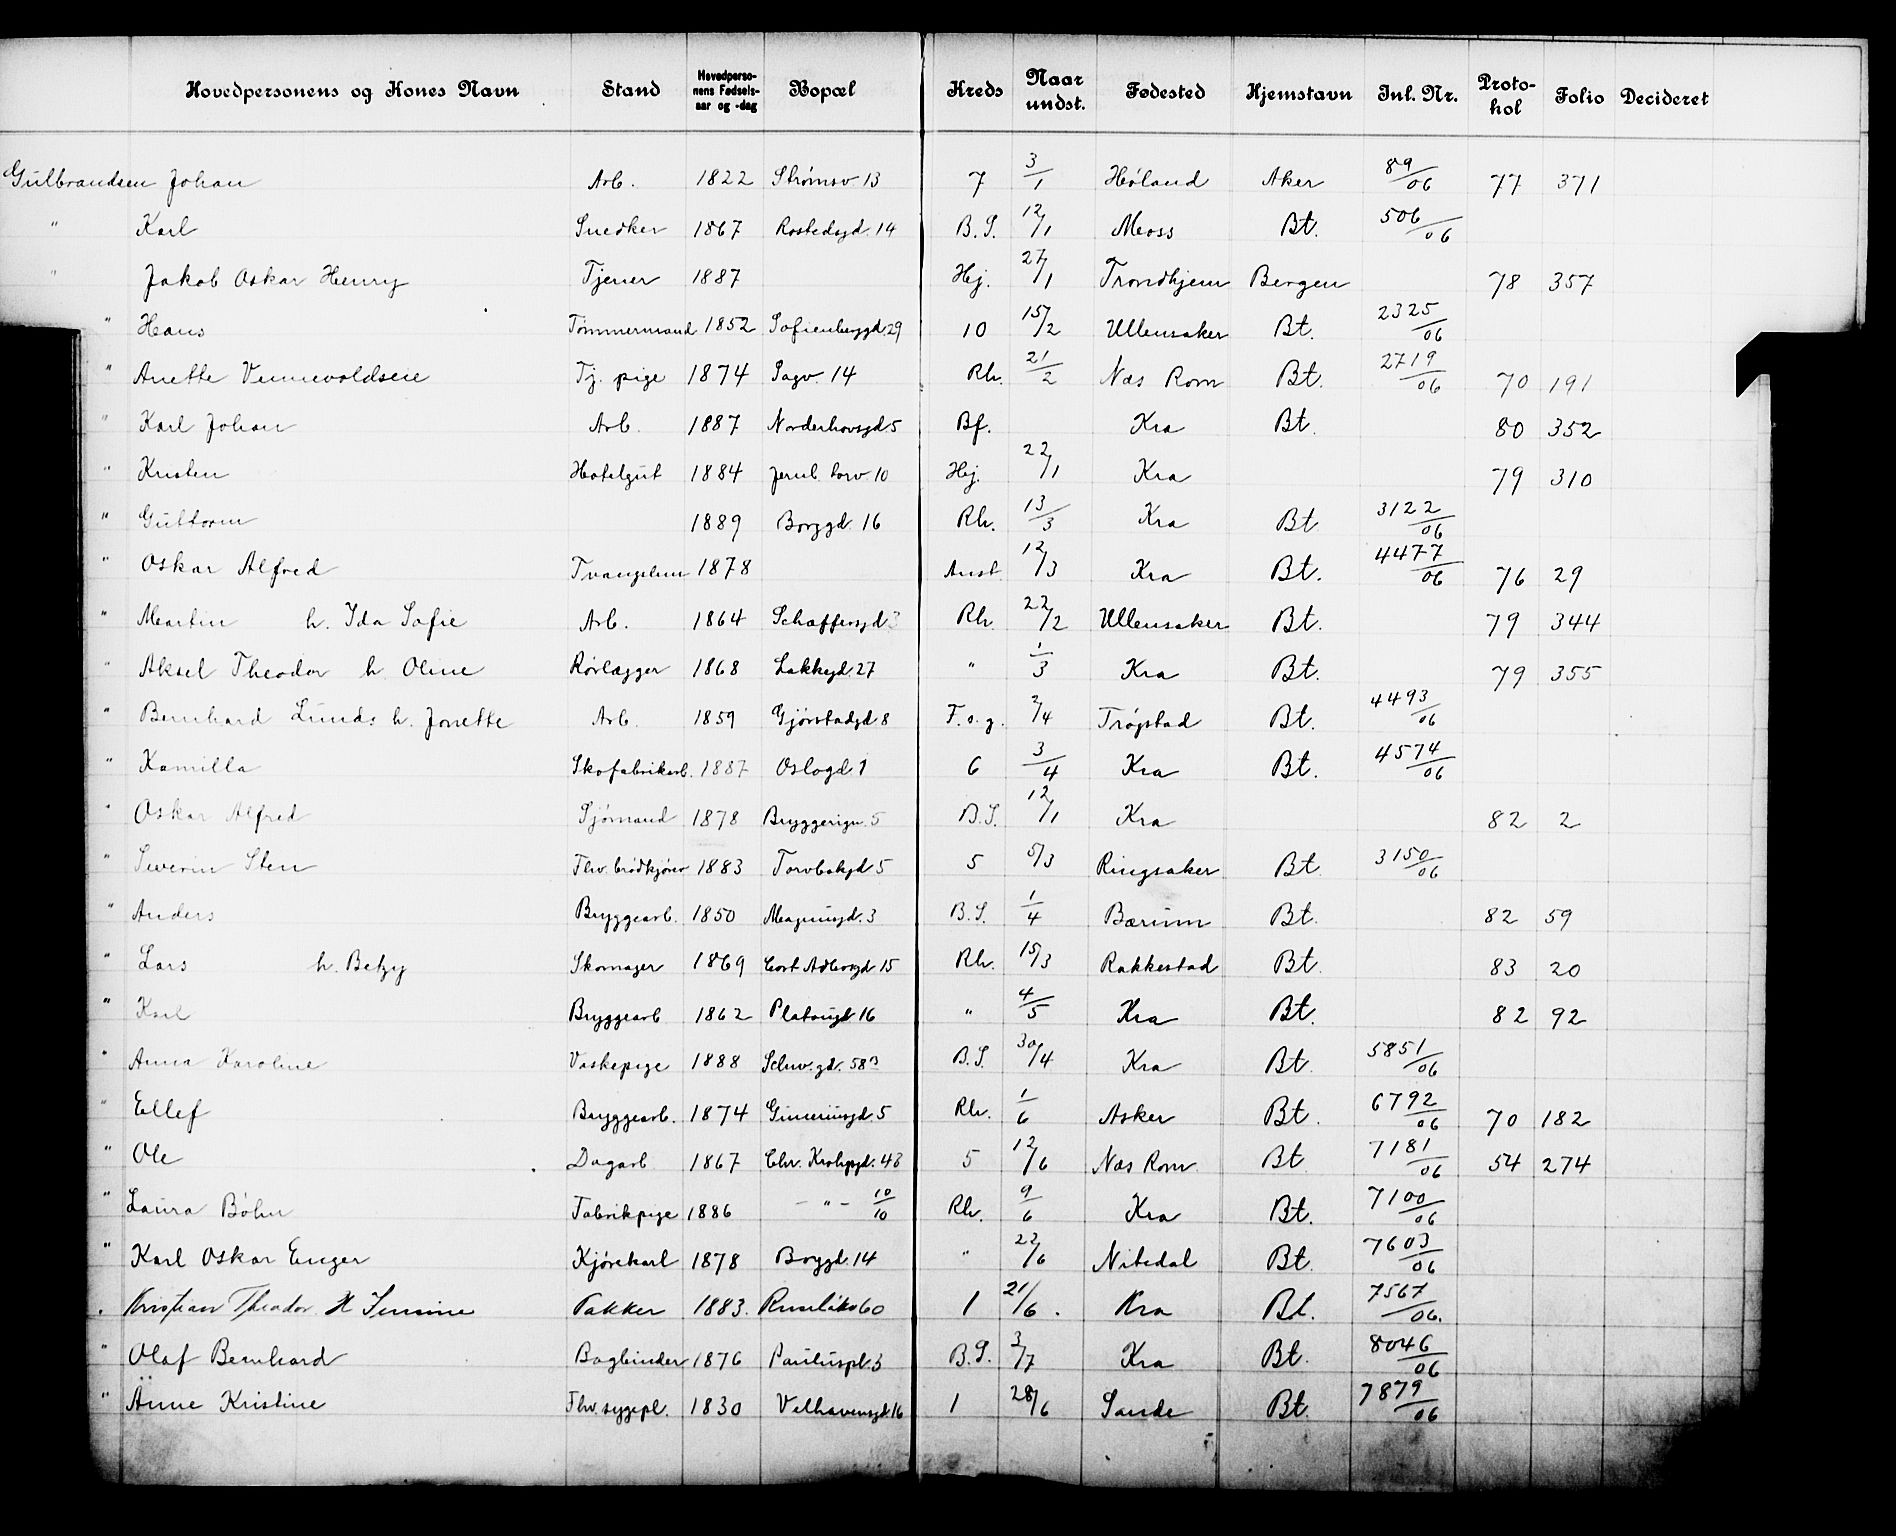 Hovedpersonens og Kones Navn Stand Hovedperso-nens Fødsels-aar og -dag Bopæl Kreds Naar undst. Fødested Hjemstavn Inl. Nr. Proto-kol Folio Decideret
Gulbrandsen Johan Arb. 1822 Strømsv 13 7 3/1 Høland Aker 89/06 77 371
" Karl Snedker 1867 Rostedsgd. 14 B.S. 12/1 Moss Bt. 506/06
" Jakob Oskar Henry Tjener 1887 Hej. 27/1 Trondhjem Bergen 78 357
" Hans Tømmermand 1852 Sofienberggd. 29 10 15/2 Ullensaker Bt. 2325/06
" Anette Vennevoldseie Tj. pige 1874 Sagv. 14 Rh. 21/2 Næs Rom Bt. 2719/06 70 191
" Karl Johan Arb. 1887 Norderhovsgd 5 Bf. Kra Bt. 80 352
" Kristen Hotelgut 1884 Jernb. torv. 10 Hej. 22/1 Kra 79 310
" Guttorm 1889 Borggd. 16 Rh. 13/3 Kra Bt. 3122/06
" Oskar Alfred Tvangslem 1878 Anst. 12/3 Kra Bt. 4477/06 76 29
" Martin h. Ida Sofie Arb. 1864 Schaffersgd 3 Rh. 22/2 Ullensaker Bt. 79 344
" Aksel Theodor h. Oline Rørlægger 1868 Lakkegd. 27 " 1/3 Kra Bt. 79 355
" Bernhard Lunds h. Jonette Arb. 1859 Gjørstadgd. 8 F.o.g. 2/4 Trøgstad Bt. 4493/06
" Kamilla Skofabrikarb. 1887 Oslogd. 1 6 3/4 Kra Bt. 4574/06
" Oskar Alfred Sjømand 1878 Bryggerign. 5 B.S. 12/1 Kra 82 2
" Severin Sten Fhv. brødkjører 1883 Torvbakgd 5 5 5/3 Ringsaker Bt. 3150/06
" Anders Bryggearb. 1850 Magnusgd. 3 B.S. 1/4 Bærum Bt. 82 59
" Lars h. Betzy Skomager 1869 Cort Adlersgd 15 Rh. 15/3 Rakkestad Bt. 83 20
" Karl Bryggearb 1862 Platousgt 16 " 4/5 Kra Bt. 82 92
" Anna Karoline Vaskepige 1888 Schw. gd. 58 B.S. 30/4 Kra Bt. 5851/06
" Ellef Bryggearb. 1874 Gimleiusgd. 5 Rh. 1/6 Asker Bt. 6792/06 70 182
" Ole Dagarb 1867 Chr. Krohgsgd. 43 5 12/6 Næs Rom. Bt 7181/06 54 274
" Laura Bøhn Fabrikpige 1886 – " – 10/10 Rh. 9/6 Kra Bt. 7100/06
" Karl Oskar Enger Kjørekarl 1878 Borggd. 14 " 22/6 Nitedal Bt. 7603/06
" Kristian Theodor H Jensine Pakker 1883. 60 1 21/6. Kra Bt. 7567/06.
" Olaf Bernhard Bogbinder 1876 Pauluspl. 3 B.S. 3/7 Kra Bt. 8046/06
" Anne Kristine Fhv. sygepl. 1830 Velhavensgd. 16 1 28/6 Sande Bt. 7879/06